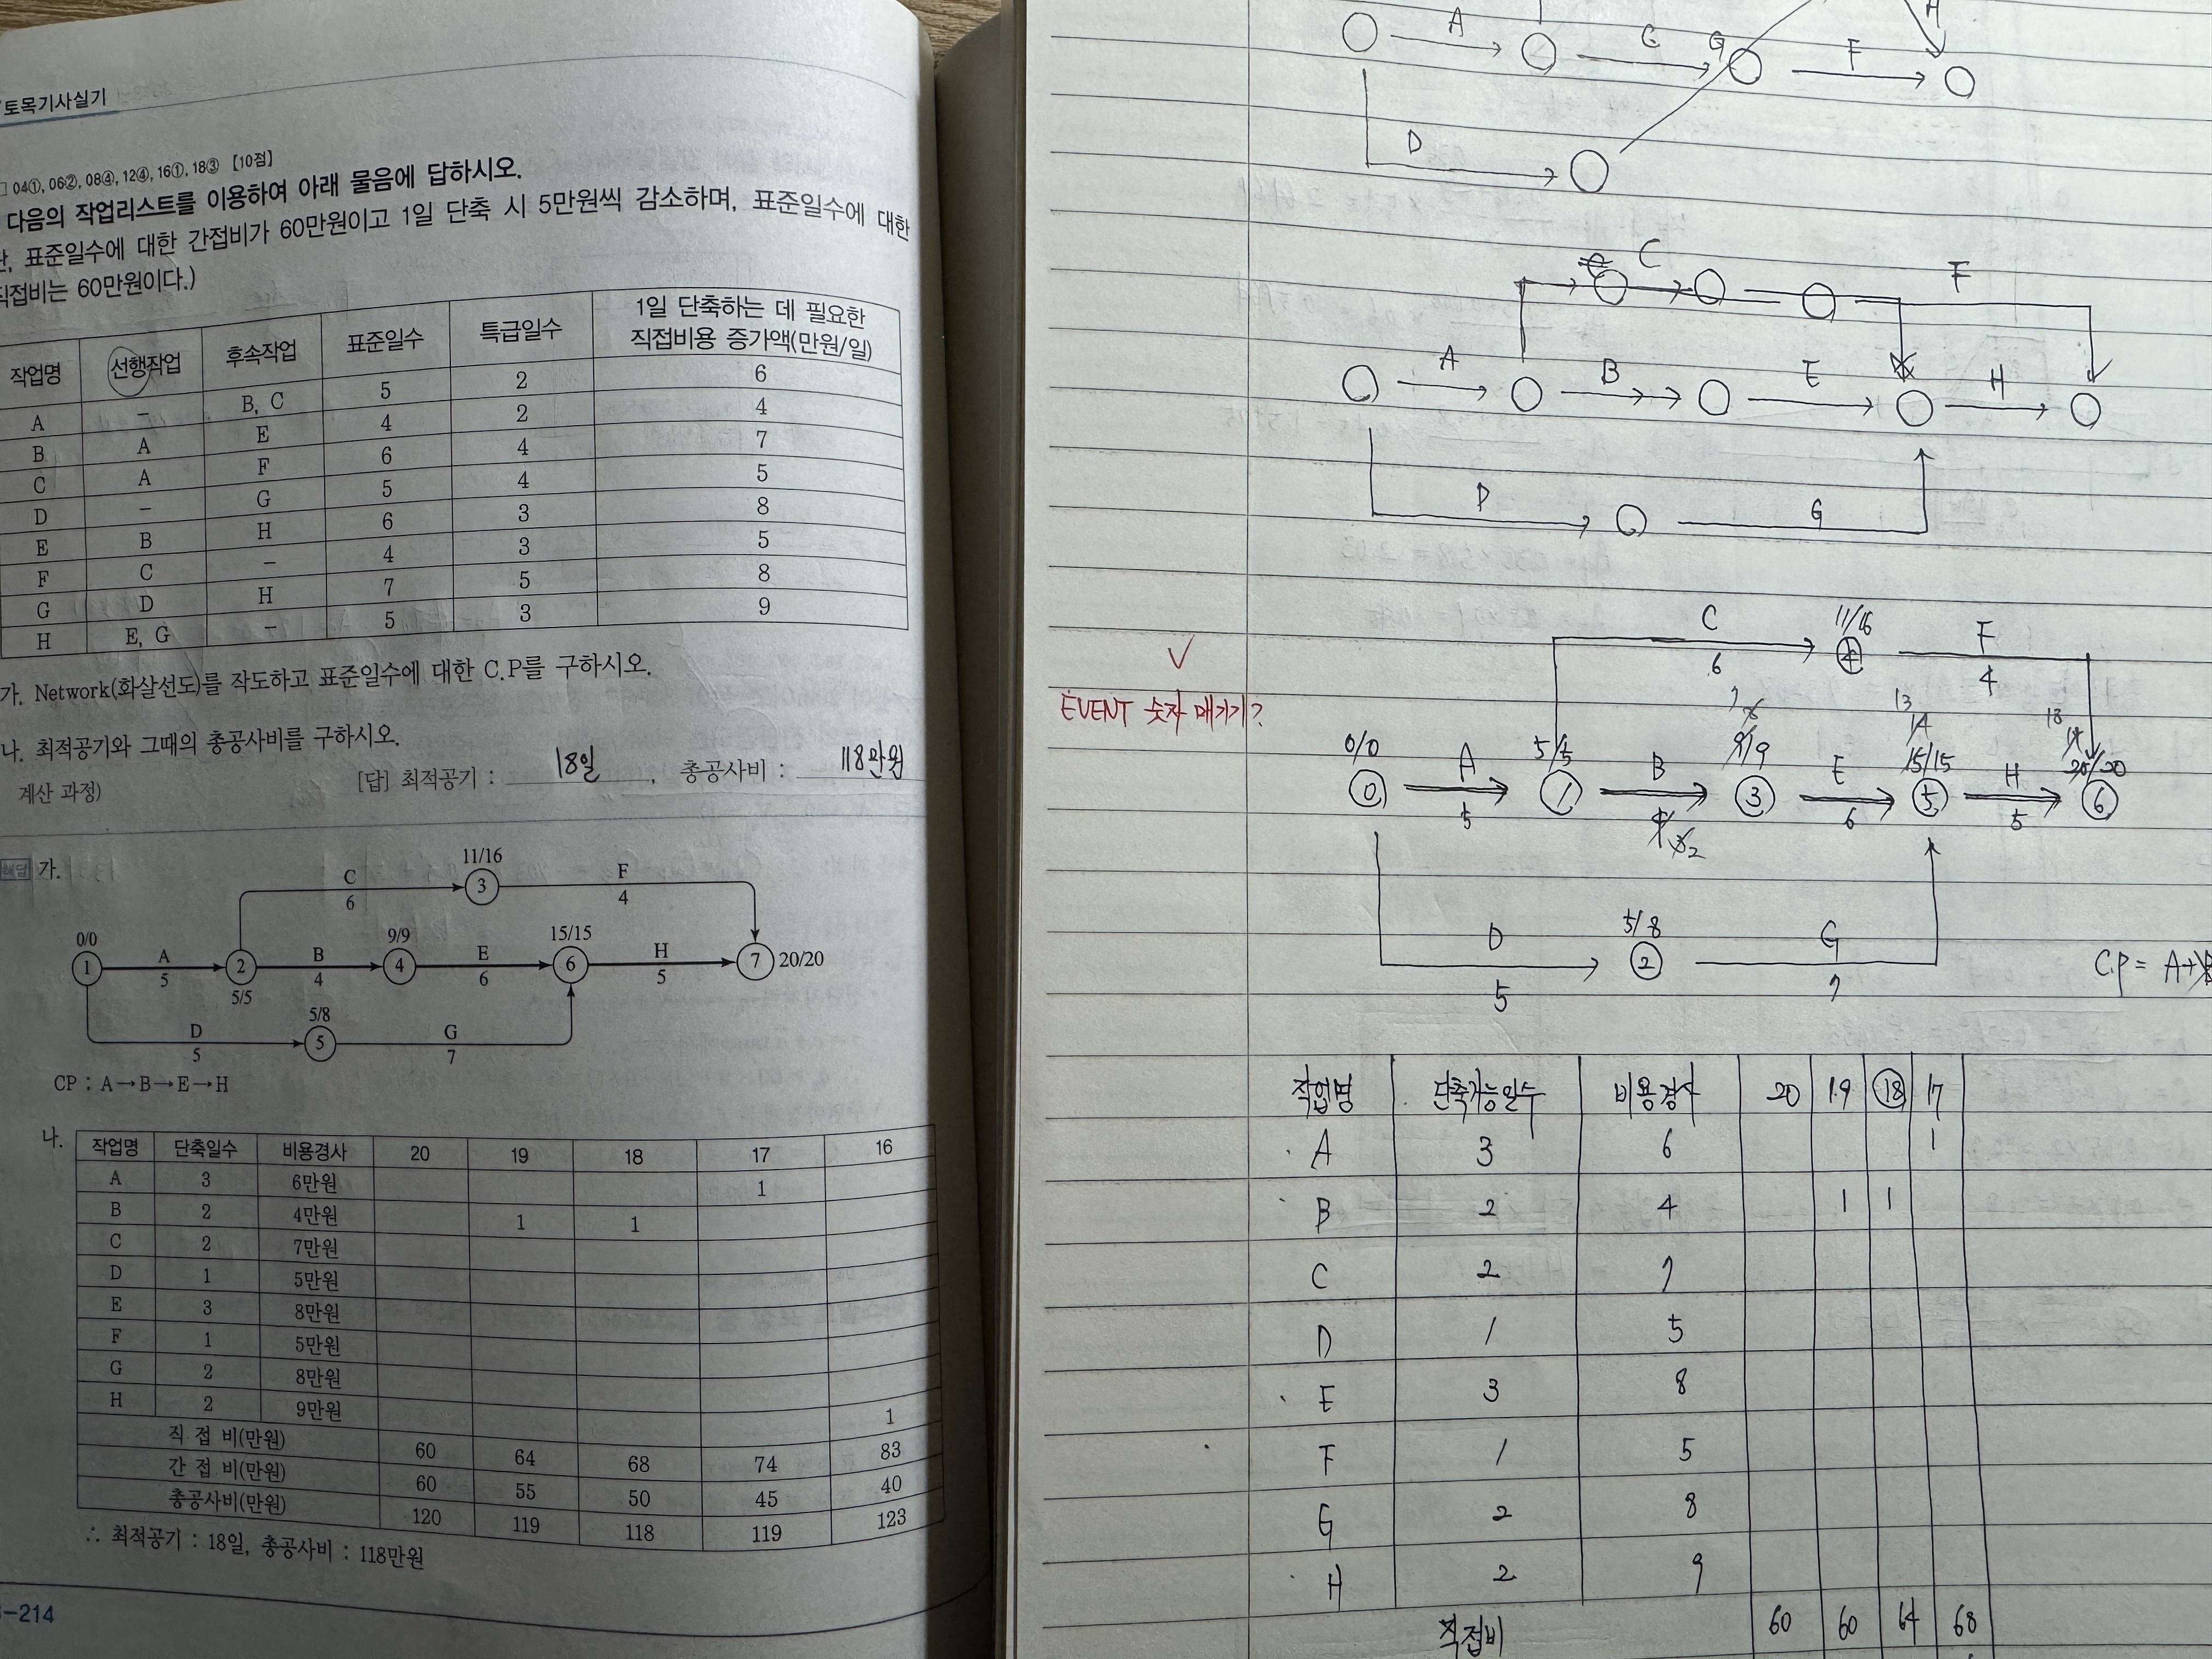 토목기사실기
04①, 06②, 08④, 12④, 16①, 18③ [10점]
다음의 작업리스트를 이용하여 아래 물음에 답하시오.
표준일수에 대한 간접비가 60만원이고 1일 단축 시 5만원씩 감소하며, 표준일수에 대한
직접비는 60만원이다.)
작업명 선행작업 후속작업 표준일수 특급일수 1일 단축하는 데 필요한
직접비용 증가액(만원/일)
A – B, C 5 2 6
B A E 4 2 4
C A F 6 4 7
D – G 5 4 5
E B H 6 3 8
F C – 4 3 5
G D H 7 5 8
H E, G – 5 3 9
가. Network(화살선도)를 작도하고 표준일수에 대한 C.P를 구하시오.
나. 최적공기와 그때의 총공사비를 구하시오.
계산 과정)
[답] 최적공기 : 18일 , 총공사비 : 118만원
해답 가.
11/16
C 3 F
6 4
0/0 9/9 15/15
A B E H
1 2 4 6 7 20/20
5 4 6 5
5/5
5/8
D 5 G
5 7
CP : A→B→E→H
나.
작업명 단축일수 비용경사 20 19 18 17 16
A 3 6만원 1
B 2 4만원 1 1
C 2 7만원
D 1 5만원
E 3 8만원
F 1 5만원
G 2 8만원
H 2 9만원 1
직 접 비(만원) 60 64 68 74 83
간 접 비(만원) 60 55 50 45 40
총공사비(만원) 120 119 118 119 123
∴ 최적공기 : 18일, 총공사비 : 118만원
-214
A C G F H
D
C F
A B E H
D G
EVENT 숫자 매기기?
C 11/16 F
6 4 4
7 8 13 14 18
0/0 5/5 9/9 15/15 20/20
A B E H
0 1 3 5 6
5 2 6 5
5/8
D 2 G
5 7
C.P = A→B
작업명 단축가능일수 비용경사 20 19 18 17
A 3 6 1
B 2 4 1 1
C 2 7
D 1 5
E 3 8
F 1 5
G 2 8
H 2 9
직접비 60 60 64 68